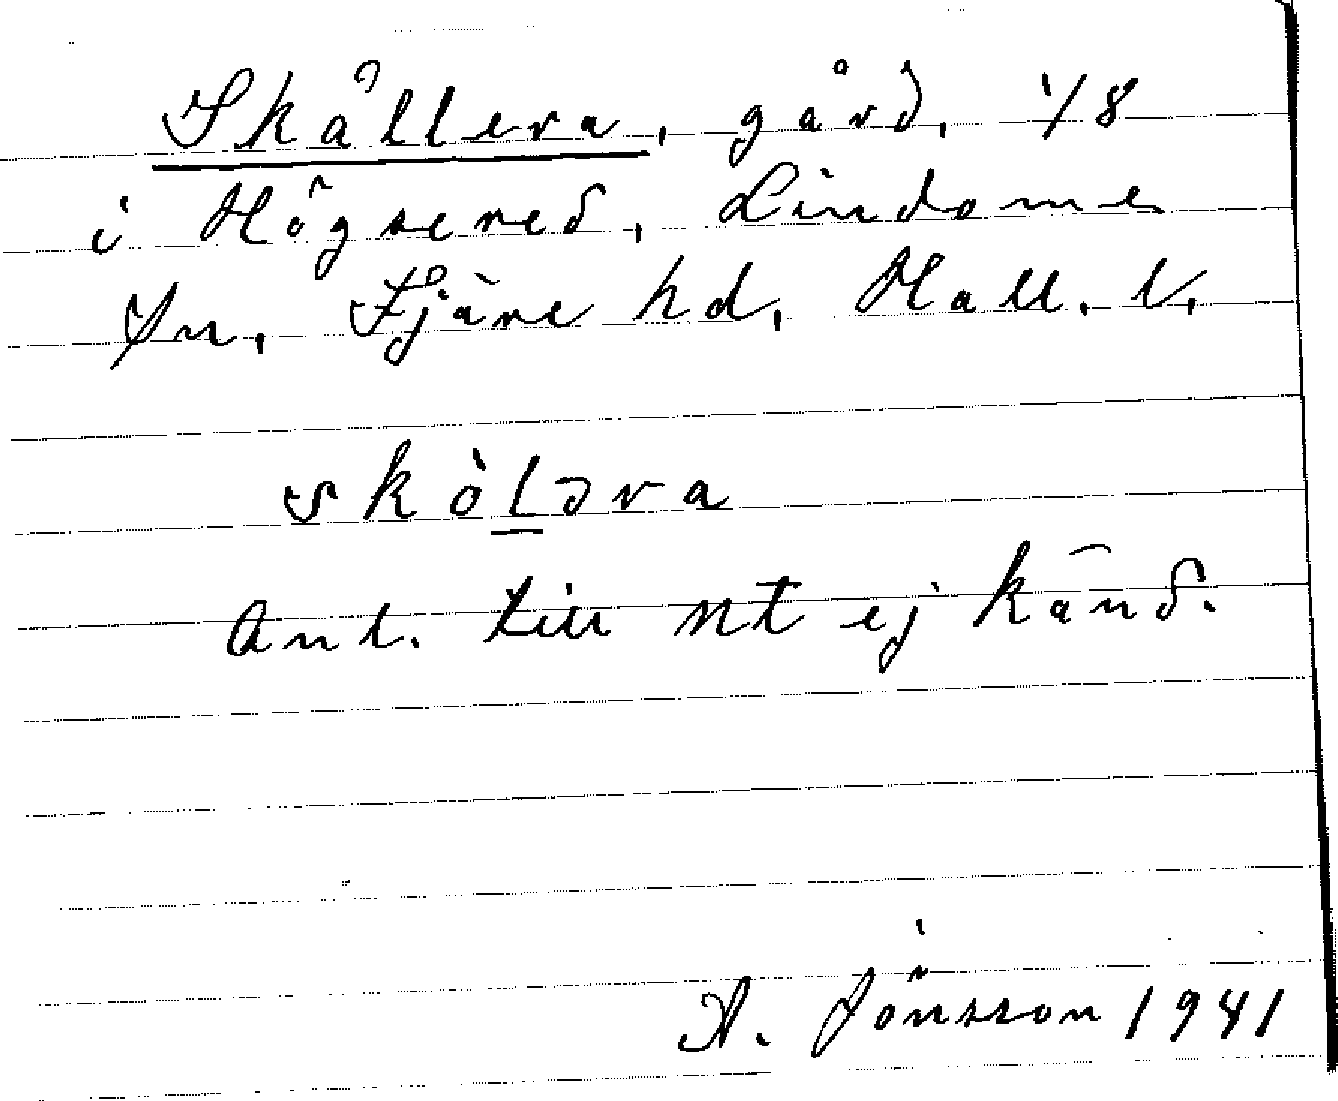 Skållera, gård, 1/8
i Högsered, Lindome
sn, Fjäre hd, Hall. l,
skòlǝra
Anl. till nt ej känd.
A. Jönsson 1941